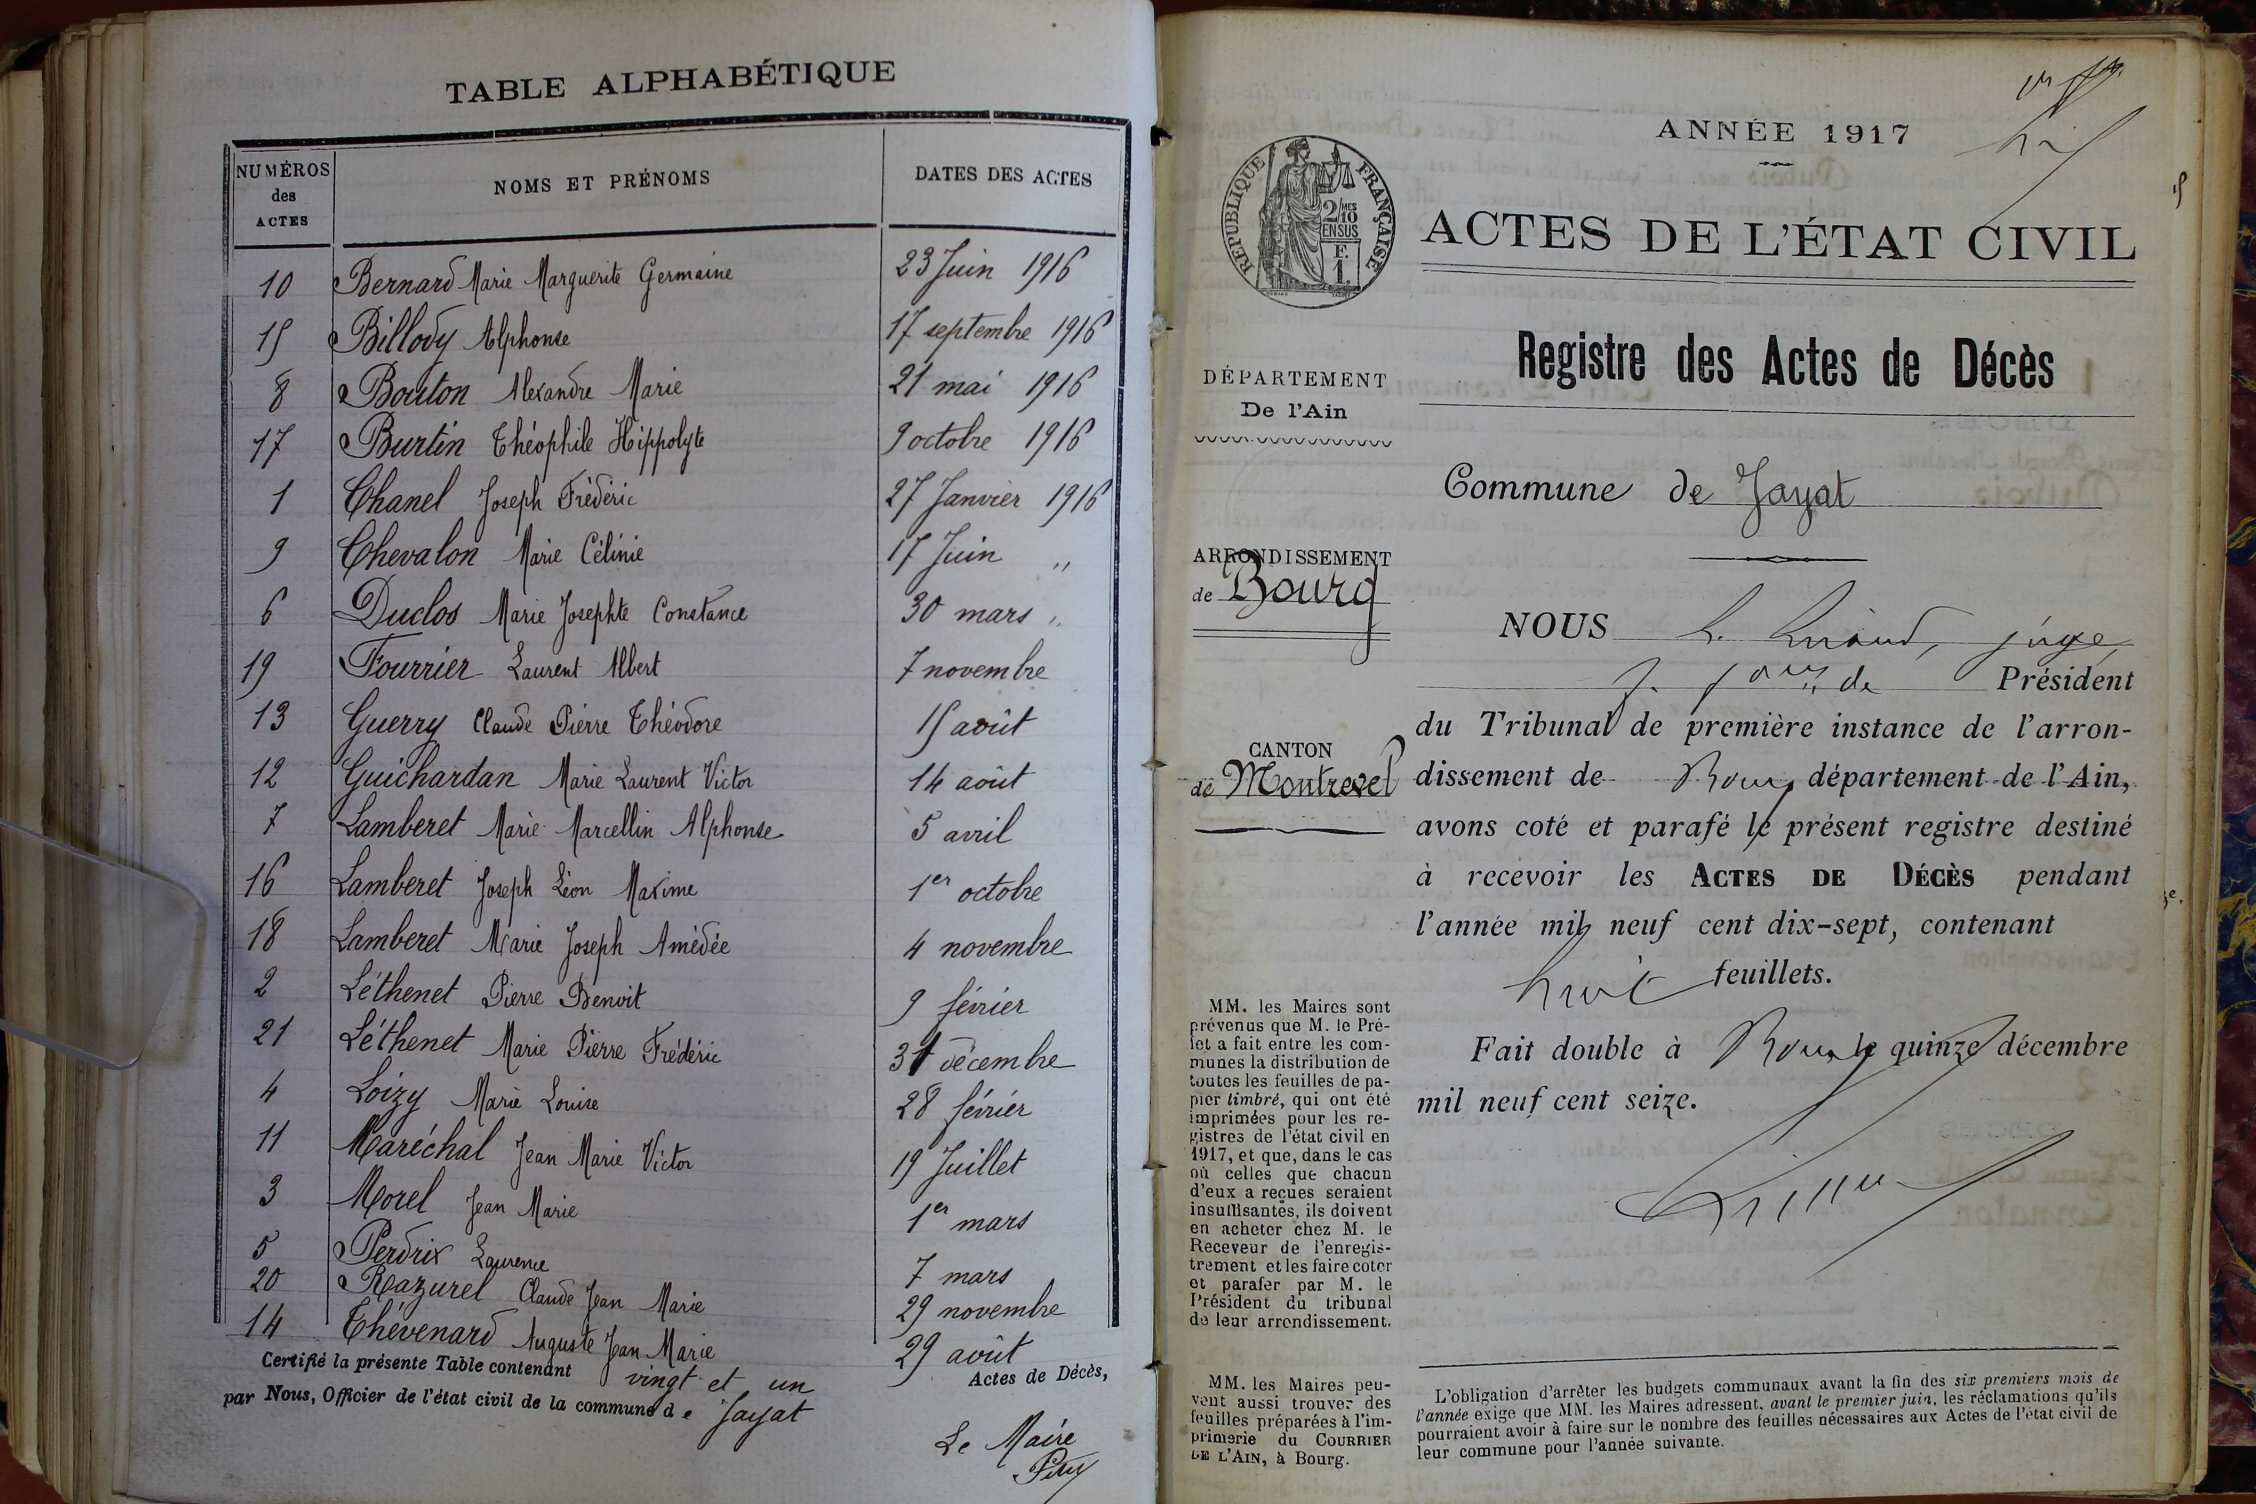 TABLE ALPHABÉTIQUE
NUMÉROS des ACTES
NOMS ET PRÉNOMS
DATES DES ACTES
10 Bernard Marie Marguerite Germaine 23 Juin 1916
15 Billody Alphonse 17 septembre 1916
8 Bouton Alexandre Marie 21 mai 1916
17 Burtin Théophile Hippolyte 9 octobre 1916
1 Chanel Joseph Frédéric 27 Janvier 1916
9 Chevalon Marie Célinie 17 Juin "
6 Duclos Marie Josephte Constance 30 mars "
19 Fourrier Laurent Albert 7 novembre
13 Guerry Claude Pierre Théodore 15 août
12 Guichardan Marie Laurent Victor 14 août
7 Lamberet Marie Marcellin Alphonse 5 avril
16 Lamberet Joseph Léon Maxime 1er octobre
18 Lamberet Marie Joseph Amédée 4 novembre
2 Léthenet Pierre Benoit 9 février
21 Léthenet Marie Pierre Frédéric 31 décembre
4 Loizy Marie Louise 28 février
11 Maréchal Jean Marie Victor 19 Juillet
3 Morel Jean Marie 1er mars
5 Perdrix Laurence 7 mars
20 Razurel Claude Jean Marie 29 novembre
14 Thévenard Auguste Jean Marie 29 août
Certifié la présente Table contenant vingt et un Actes de Décès,
par Nous, Officier de l'état civil de la commune de Jayat
Le Maire
ANNÉE 1917
RÉPUBLIQUE FRANÇAISE
2/10 MES
EN SUS
F.
1.
ACTES DE L'ÉTAT CIVIL
Registre des Actes de Décès
DÉPARTEMENT
De l'Ain
Commune de Jayat
ARRONDISSEMENT
de Bourg
NOUS juge
de Président
du Tribunal de première instance de l'arron-
CANTON
de Montrevel
dissement de Bourg département de l'Ain,
avons coté et parafé le présent registre destiné
à recevoir les ACTES DE DÉCÈS pendant
l'année mil neuf cent dix-sept, contenant
huit feuillets.
Fait double à Bourg le quinze décembre
mil neuf cent seize.
MM. les Maires sont
prévenus que M. le Pré-
fet a fait entre les com-
munes la distribution de
toutes les feuilles de pa-
pier timbré, qui ont été
imprimées pour les re-
gistres de l'état civil en
1917, et que, dans le cas
où celles que chacun
d'eux a reçues seraient
insuffisantes, ils doivent
en acheter chez M. le
Receveur de l'enregis-
trement et les faire coter
et parafer par M. le
Président du tribunal
de leur arrondissement.
MM. les Maires peu-
vent aussi trouver des
feuilles préparées à l'im-
primerie du COURRIER
DE L'AIN, à Bourg.
L'obligation d'arrêter les budgets communaux avant la fin des six premiers mois de
l'année exige que MM. les Maires adressent, avant le premier juin, les réclamations qu'ils
pourraient avoir à faire sur le nombre des feuilles nécessaires aux Actes de l'état civil de
leur commune pour l'année suivante.